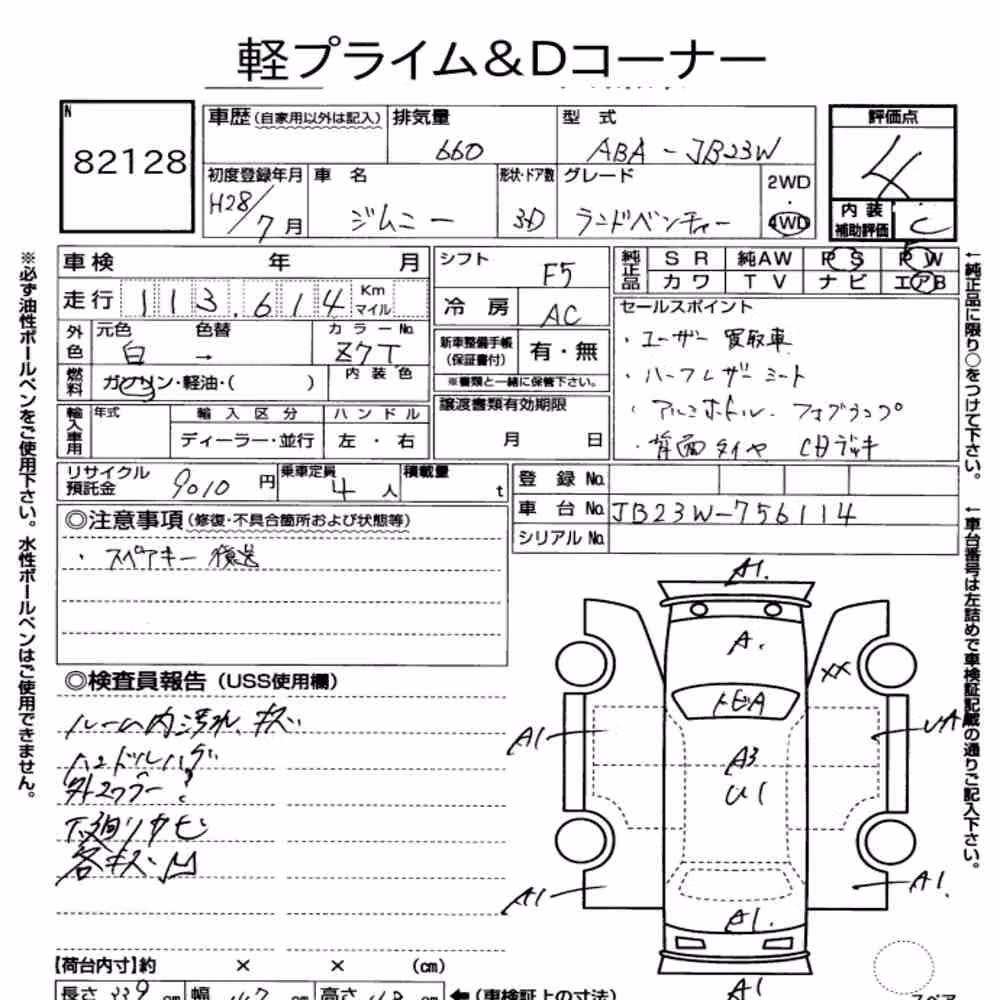 軽プライム＆Dコーナー
N
82128
車歴 (自家用以外は記入) 排気量 型 式
660 ABA-JB23W
初度登録年月 車 名 形状・ドア数 グレード
H28/7月 ジムニー 3D ランドベンチャー
2WD
・
4WD
評価点
4
内装
補助評価 C
車検 年 月
走行 113,614 Km
マイル
外色 元色 色替 カラーNo.
白 → Z7T
燃料 ガソリン・軽油・( ) 内装色
輸入車用 年式 輸入区分 ハンドル
ディーラー・並行 左・右
シフト F5
冷房 AC
新車整備手帳
(保証書付) 有・無
※書類と一緒に保管下さい。
譲渡書類有効期限
月 日
純正品 SR 純AW PS PW
カワ TV ナビ エアB
セールスポイント
・ユーザー買取車
・ハーフレザーシート
・フォグランプ
・背面タイヤ CDデッキ
リサイクル
預託金 9010 円 乗車定員 4人 積載量 t
登録No.
車台No. JB23W-756114
シリアルNo.
◎注意事項 (修復・不具合箇所および状態等)
・スペアキー後送
◎検査員報告 (USS使用欄)
ルーム内汚れ、キズ
ハンドルハゲ
下廻りサビ
各キズ凹
A1.
A.
XX
トビA
A1
UA
A3
U1
A1
A1.
A1.
A1
【荷台内寸】約 × × (cm)
長さ 339 cm 幅 147 cm 高さ cm ←(車検証上の寸法)
スペア
※必ず油性ボールペンをご使用下さい。水性ボールペンはご使用できません。
←純正品に限り○をつけて下さい。
←車台番号は左詰めで車検証記載の通りご記入下さい。